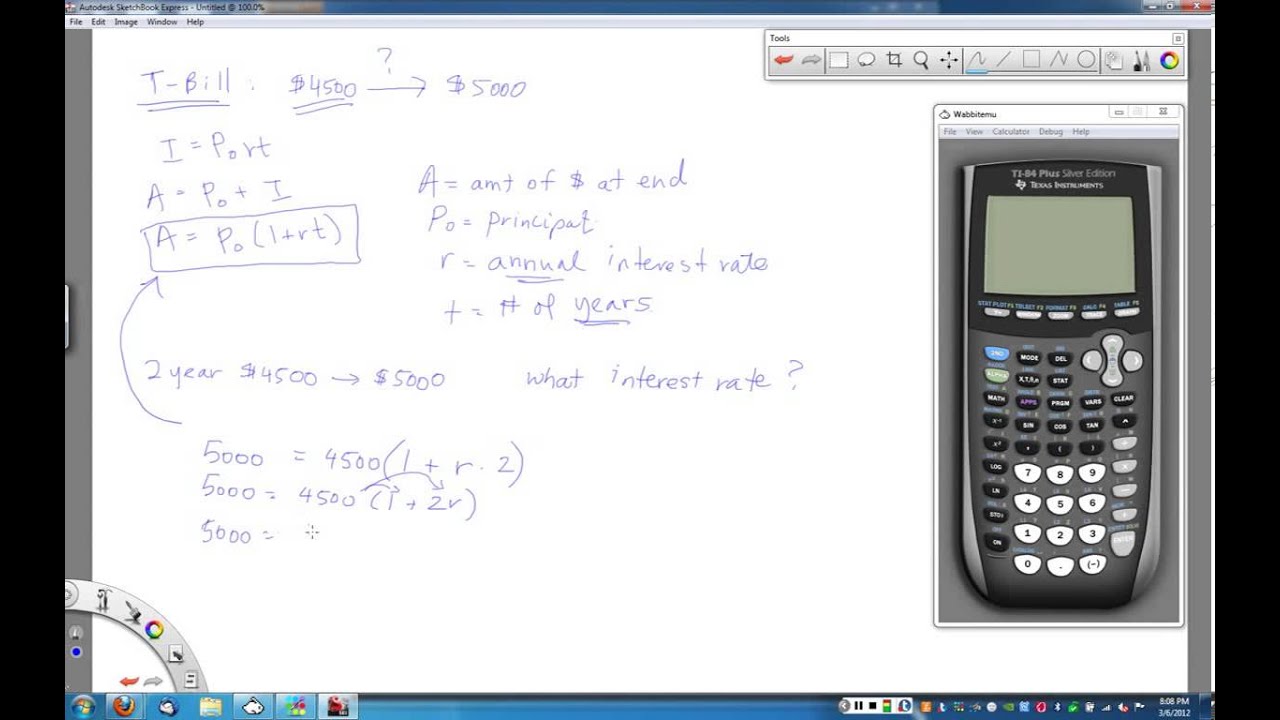 Autodesk SketchBook Express - Untitled @ 100.0%
File Edit Image Window Help
Tools
T-Bill : $4500 ? → $5000
I = P₀rt
A = P₀ + I
A = P₀(1+rt)
A = amt of $ at end
P₀ = principal
r = annual interest rate
t = # of years
2 year $4500 → $5000 what interest rate?
5000 = 4500(1 + r · 2)
5000 = 4500 (1 + 2r)
5000 =
Wabbitemu
File View Calculator Debug Help
TI-84 Plus Silver Edition
TEXAS INSTRUMENTS
STAT PLOT F1 TBLSET F2 FORMAT F3 CALC F4 TABLE F5
Y= WINDOW ZOOM TRACE GRAPH
2ND MODE DEL
ALPHA X,T,θ,n STAT
MATH APPS PRGM VARS CLEAR
x⁻¹ SIN COS TAN ^
x² , ( ) ÷
LOG 7 8 9 ×
LN 4 5 6 −
STO› 1 2 3 +
ON 0 . (-) ENTER
8:08 PM
3/6/2012